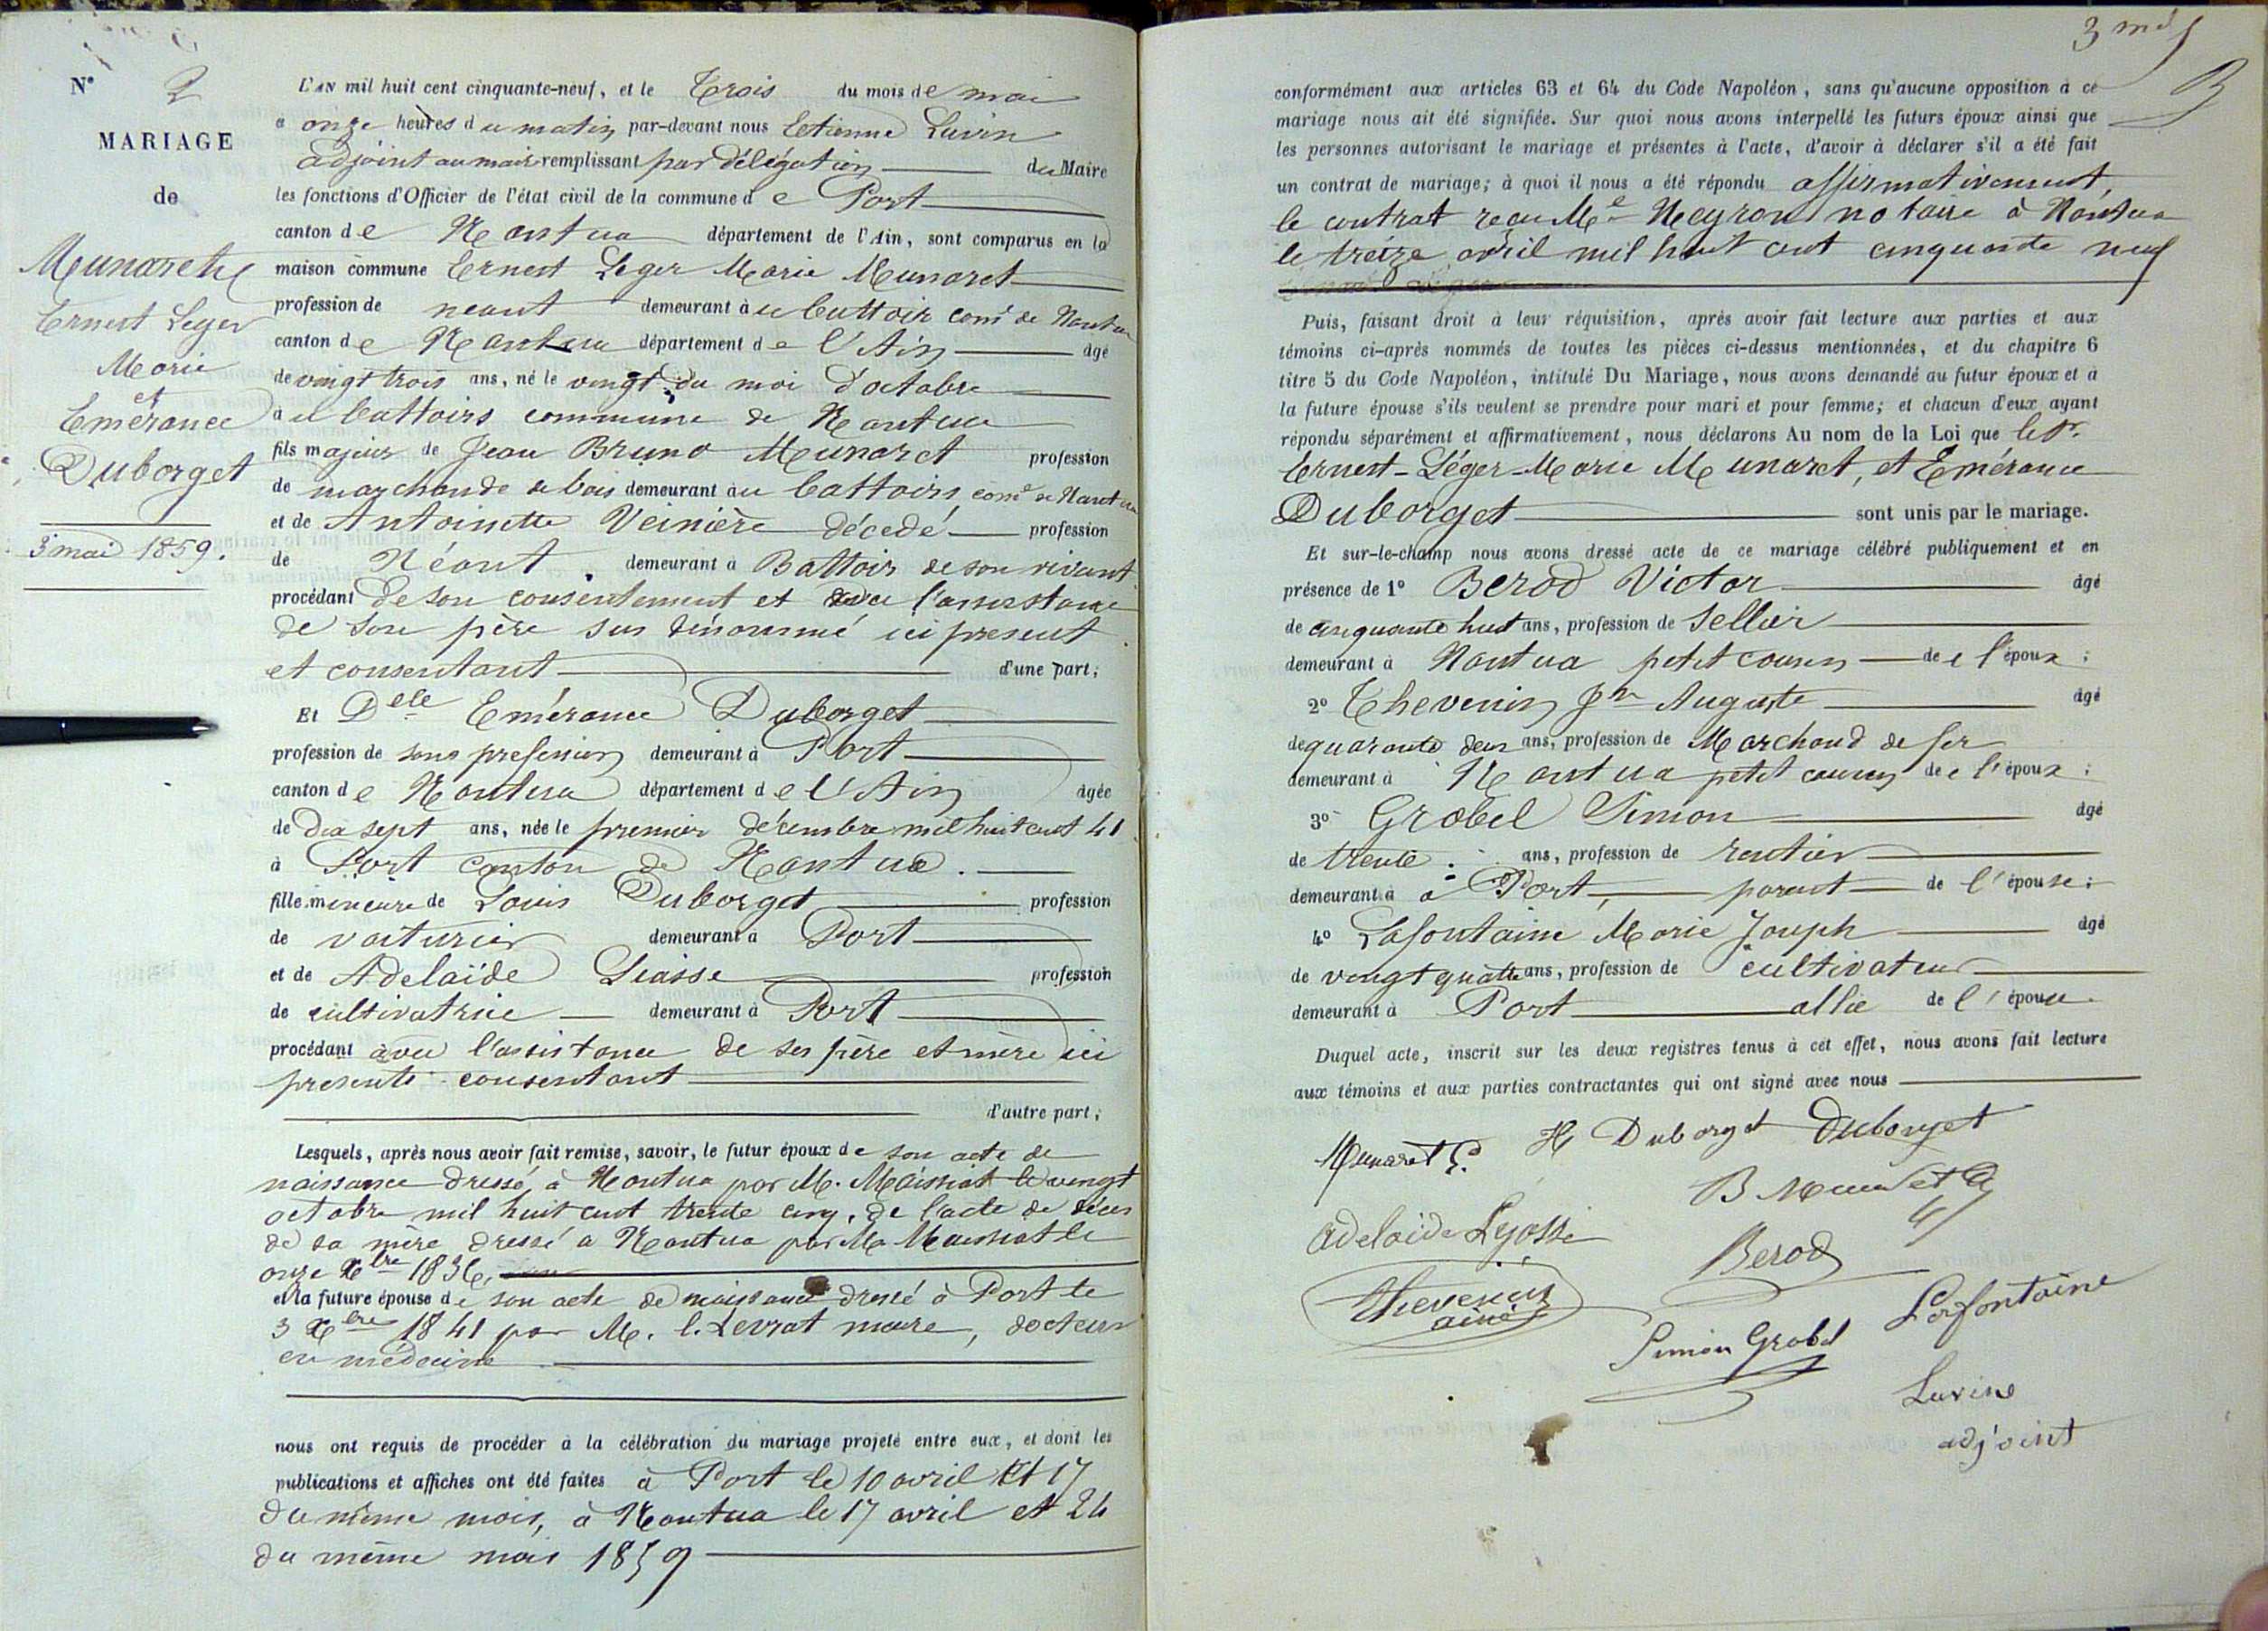 N° 2
MARIAGE
de
Munaret
Ernest Leger
Marie
et
Emérance
Duborget
3 mai 1859.
L'AN mil huit cent cinquante-neuf, et le Trois du mois de mai
à onze heures du matin par-devant nous Etienne Luvin
adjoint au maire remplissant par délégation du Maire
les fonctions d'Officier de l'état civil de la commune de Port
canton de Nantua département de l'Ain, sont comparus en la
maison commune Ernest Leger Marie Munaret
profession de neant demeurant à au battoir com^e de Nantua
canton de Nantua département de l'Ain âgé
de vingt trois ans, né le vingt du moi d'octobre
à au battoirs commune de Nantua
fils majeur de Jean Bruno Munaret profession
de marchande de bois demeurant à au battoirs com^e de Nantua
et de Antoinette Veinière décedé profession
de Néant demeurant à Battoir de son vivant
procédant de son consentement et avec l'assistance
de son père sus dénommé ici present
et consentant d'une part;
Et D^elle Emérance Duborget
profession de sans profession demeurant à Port
canton de Nantua département de l'Ain âgée
de Dix sept ans, née le premier décembre mil huit cent 41
à Port canton de Nantua.
fille mineure de Louis Duborget profession
de voiturier demeurant à Port
et de Adelaïde Liasse profession
de cultivatrice demeurant à Port
procédant avec l'assistance de ses père et mère ici
presents consentant
d'autre part;
Lesquels, après nous avoir fait remise, savoir, le futur époux de son acte de
naissance dressé à Nantua par M. Maissiat le vingt
octobre mil huit cent trente cinq, de l'acte de décès
de sa mère dressé a Nantua par M. Maissiat le
onze X^bre 1836,
et la future épouse de son acte de naissance dressé à Port le
3 X^bre 1841 par M. C. Levrat maire, docteur
en médecine
nous ont requis de procéder à la célébration du mariage projeté entre eux, et dont les
publications et affiches ont été faites à Port le 10 avril et 17
du même mois, à Nantua le 17 avril et 24
du même mois 1859
3 m^ds
conformément aux articles 63 et 64 du Code Napoléon, sans qu'aucune opposition à ce
mariage nous ait été signifiée. Sur quoi nous avons interpellé les futurs époux ainsi que
les personnes autorisant le mariage et présentes à l'acte, d'avoir à déclarer s'il a été fait
un contrat de mariage; à quoi il nous a été répondu affirmativement,
le contrat reçu M^e Neyron notaire à Nantua
le treize avril mil huit cent cinquante neuf
Puis, faisant droit à leur réquisition, après avoir fait lecture aux parties et aux
témoins ci-après nommés de toutes les pièces ci-dessus mentionnées, et du chapitre 6
titre 5 du Code Napoléon, intitulé Du Mariage, nous avons demandé au futur époux et à
la future épouse s'ils veulent se prendre pour mari et pour femme; et chacun d'eux ayant
répondu séparément et affirmativement, nous déclarons Au nom de la Loi que le S^r.
Ernest-Léger-Marie Munaret, et Emérance
Duborget sont unis par le mariage.
Et sur-le-champ nous avons dressé acte de ce mariage célébré publiquement et en
présence de 1° Berod Victor âgé
de cinquante huit ans, profession de Sellier
demeurant à Nantua petit cousin de l'époux;
2° Thevenin J^n Auguste âgé
de quarante deux ans, profession de Marchand de fer
demeurant à Nantua petit cousin de l'époux;
3° Grobel Simon âgé
de trente ans, profession de rentier
demeurant à à Port, parent de l'épouse;
4° Lafontaine Marie Joseph âgé
de vingt quatre ans, profession de cultivateur
demeurant à Port allié de l'épouse.
Duquel acte, inscrit sur les deux registres tenus à cet effet, nous avons fait lecture
aux témoins et aux parties contractantes qui ont signé avec nous
Munaret E. H Duborget Duborget
B Munaret
adelaide Lyasse
Berod
Thevenin
ainé
Lafontaine
Simon Grobel
Luvine
adjoint